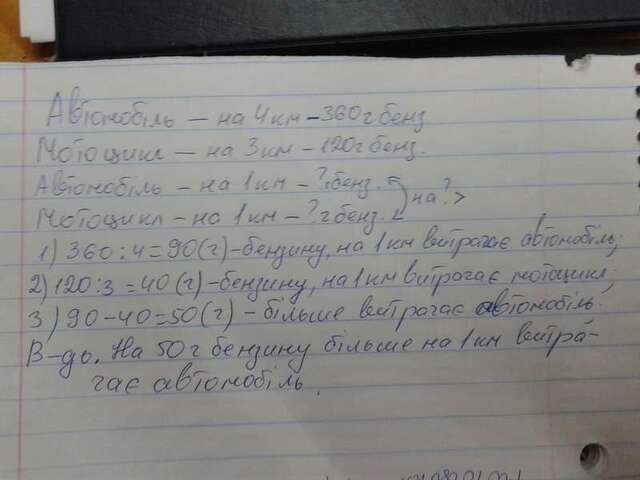 Автомобіль – на 4 км – 360 г бенз
Мотоцикл – на 3 км – 120 г бенз.
Автомобіль – на 1 км – ? бенз.
на ? >
Мотоцикл – на 1 км – ? г бенз.
1) 360 : 4 = 90 (г) – бензину, на 1 км витрачає автомобіль;
2) 120 : 3 = 40 (г) – бензину, на 1 км витрачає мотоцикл;
3) 90 – 40 = 50 (г) – більше витрачає автомобіль.
В-дь. На 50 г бензину більше на 1 км витра-
чає автомобіль.